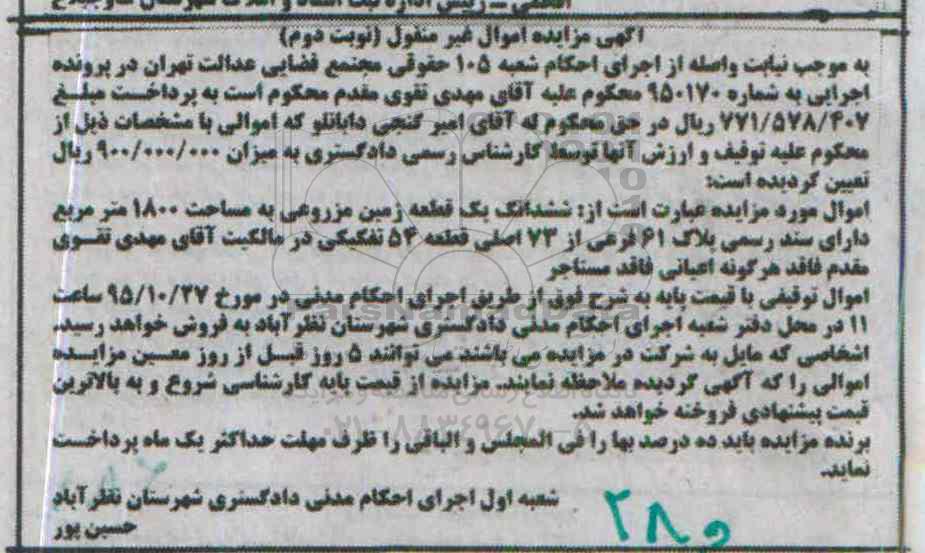 آگهی مزایده اموال غیر منقول (نوبت دوم)
به موجب نیابت واصله از اجرای احکام شعبه ۱۰۵ حقوقی مجتمع قضایی عدالت تهران در پرونده
اجرایی به شماره ۹۵۰۱۷۰ محکوم علیه آقای مهدی تقوی مقدم محکوم است به پرداخت مبلغ
۷۷۱/۵۷۸/۴۰۷ ریال در حق محکوم له آقای امیر گنجی داباتلو که اموالی با مشخصات ذیل از
محکوم علیه توقیف و ارزش آنها توسط کارشناس رسمی دادگستری به میزان ۹۰۰/۰۰۰/۰۰۰ ریال
تعیین گردیده است:
اموال مورد مزایده عبارت است از: ششدانگ یک قطعه زمین مزروعی به مساحت ۱۸۰۰ متر مربع
دارای سند رسمی پلاک ۶۱ فرعی از ۷۳ اصلی قطعه ۵۴ تفکیکی در مالکیت آقای مهدی تقوی
مقدم فاقد هرگونه اعیانی فاقد مستاجر
اموال توقیفی با قیمت پایه به شرح فوق از طریق اجرای احکام مدنی در مورخ ۹۵/۱۰/۲۷ ساعت
۱۱ در محل دفتر شعبه اجرای احکام مدنی دادگستری شهرستان نظرآباد به فروش خواهد رسید.
اشخاصی که مایل به شرکت در مزایده می باشند می توانند ۵ روز قبل از روز معین مزایده
اموالی را که آگهی گردیده ملاحظه نمایند. مزایده از قیمت پایه کارشناسی شروع و به بالاترین
قیمت پیشنهادی فروخته خواهد شد.
برنده مزایده باید ده درصد بها را فی المجلس و الباقی را ظرف مهلت حداکثر یک ماه پرداخت
نماید.
شعبه اول اجرای احکام مدنی دادگستری شهرستان نظرآباد
حسین پور
ParsNamadData
۰۲۱-۸۸۳۴۹۶۷۰-۵